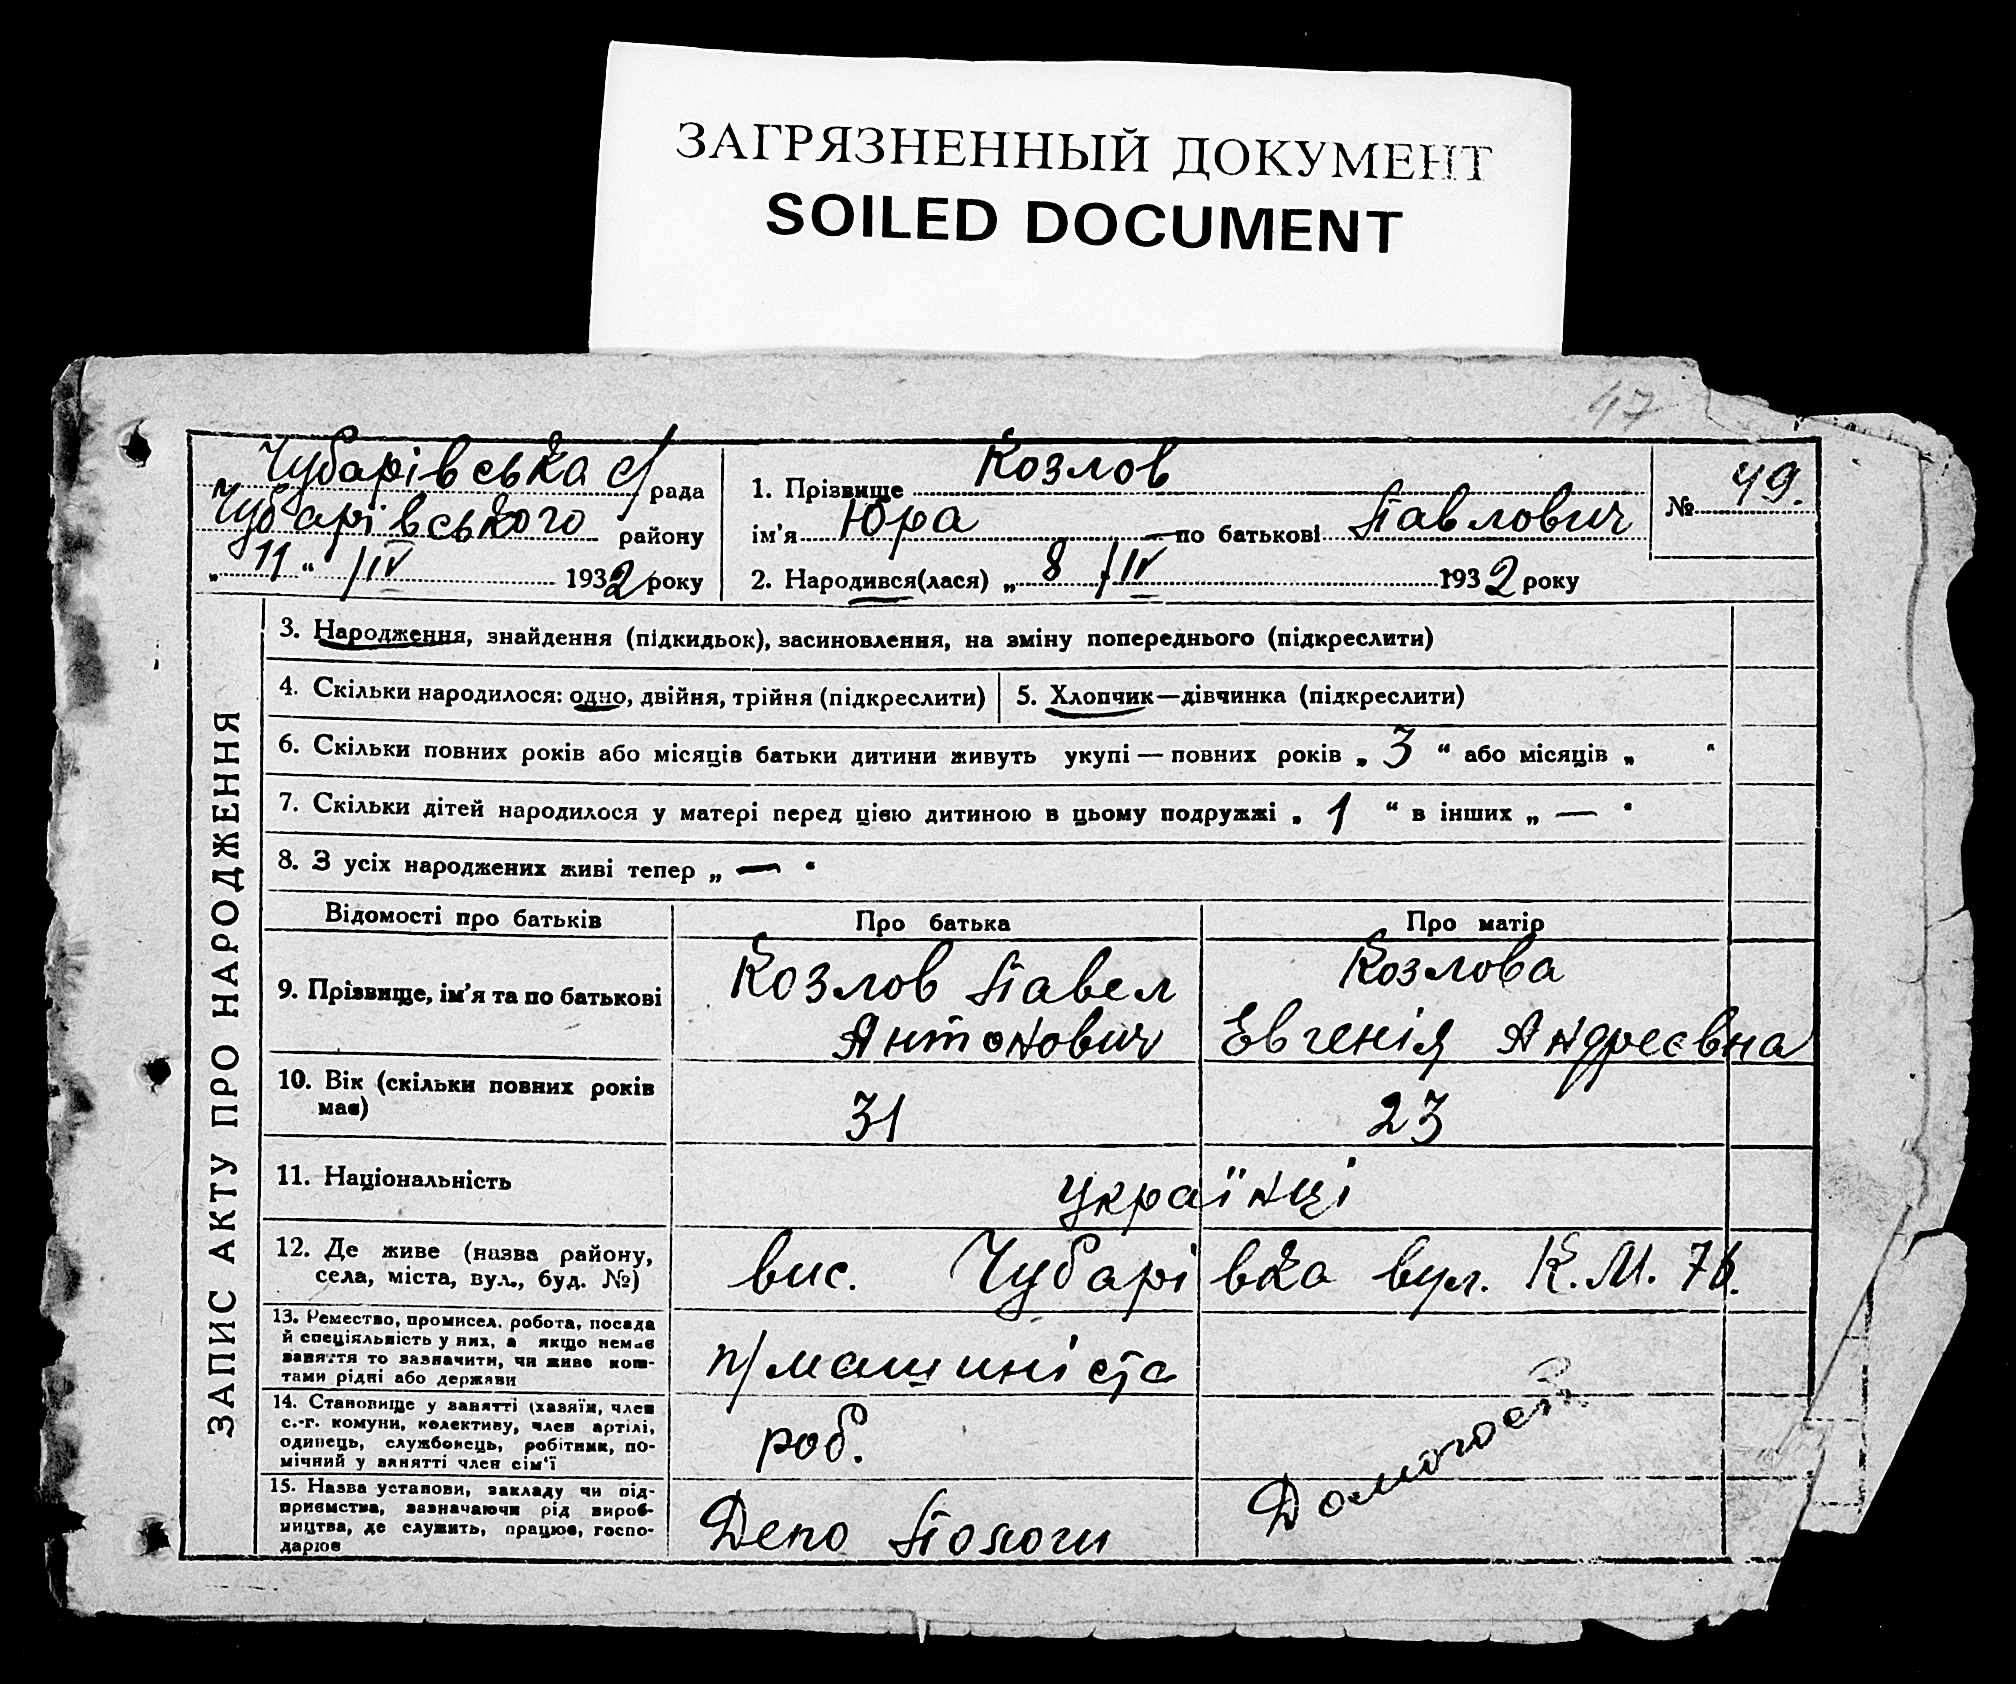 ЗАГРЯЗНЕННЫЙ ДОКУМЕНТ
SOILED DOCUMENT
47
Чубарівська с/рада
Чубарівського району
„11“ /IV 1932 року
1. Прізвище Козлов
ім'я Юра по батькові Павлович
2. Народився(лася) „8 /IV 1932 року
№ 49.
ЗАПИС АКТУ ПРО НАРОДЖЕННЯ
3. Народження, знайдення (підкидьок), засиновлення, на зміну попереднього (підкреслити)
4. Скільки народилося: одно, двійня, трійня (підкреслити)
5. Хлопчик—дівчинка (підкреслити)
6. Скільки повних років або місяців батьки дитини живуть укупі — повних років „ 3 “ або місяців „ “
7. Скільки дітей народилося у матері перед цією дитиною в цьому подружжі „ 1 “ в інших „ — “
8. З усіх народжених живі тепер „ — “
Відомості про батьків
Про батька
Про матір
9. Прізвище, ім'я та по батькові
Козлов Павел
Антонович
Козлова
Евгенія Андреєвна
10. Вік (скільки повних років
має)
31
23
11. Національність
Українці
12. Де живе (назва району,
села, міста, вул., буд. №)
вис. Чубарівка вул. К.М.
13. Ремество, промисел, робота, посада
й спеціяльність у них, а якщо немає
заняття то зазначити, чи живе кош-
тами рідні або держави
п/машиніста
14. Становище у занятті (хазяїн, член
с.-г. комуни, колективу, член артілі,
одинець, службовець, робітник, по-
мічний у занятті член сім'ї
роб.
15. Назва установи, закладу чи під-
приємства, зазначаючи рід вироб-
ництва, де служить, працює, госпо-
дарює
Депо Пологи